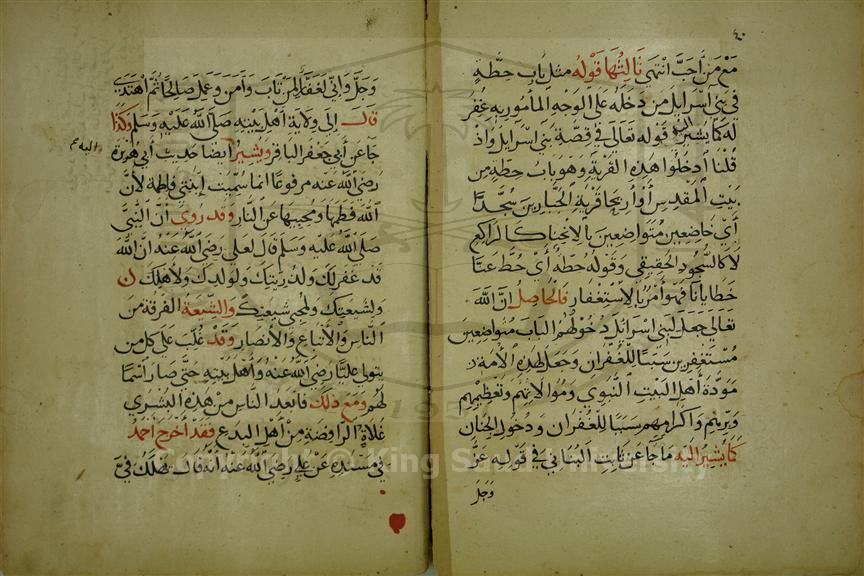 ٤٠
مع من أحب انتهى ثالثها قوله مثل باب حطة
في بني اسرايل من دخله على الوجه المأمور به غفر
له كما يشير اليه قوله تعالى في قصة بني اسرايل واذ
قلنا ادخلوا هذه القرية وهو باب حطة من
بيت المقدس أو أريحا قرية الجبارين سجدا
أي خاضعين متواضعين بالانحناء كالراكع
لا كالسجود الحقيقي وقوله حطة أي حط عنا
خطايانا فهو أمر بالاستغفار فالحاصل ان الله
تعالى جعل لبني اسرايل دخولهم الباب متواضعين
مستغفرين سببا للغفران وجعل لهذه الأمة
مودة أهل البيت النبوي وموالاتهم وتعظيمهم
وبرهم واكرامهم سببا للغفران ودخول الجنان
كما يشير اليه ما جا عن ثابت البناني في قوله عز
وجل
وجل واني لغفار لمن تاب وآمن وعمل صالحا ثم اهتدى
قال الى ولاية أهل بيته صلى الله عليه وسلم وكذا
جا عن أبي جعفر الباقر ويشير أيضا حديث أبي هريرة
اليه
رضي الله عنه مرفوعا انما سميت ابنتي فاطمة لأن
الله فطمها ومحبيها عن النار وقد روي أن النبي
صلى الله عليه وسلم قال لعلي رضي الله عنه ان الله
قد غفر لك ولذريتك ولولدك ولأهلك
ولشيعتك ولمحبي شيعتك والشيعة الفرقة من
الناس والأتباع والأنصار وقد غلب على كل من
يتولى عليا رضي الله عنه وأهل بيته حتى صار اسما
لهم ومع ذلك فأبعد الناس من هذه البشرى
غلاة الرافضة من أهل البدع فقد أخرج احمد
في مسنده عن علي رضي الله عنه أنه قال يهلك في
Copyright © King Saud University